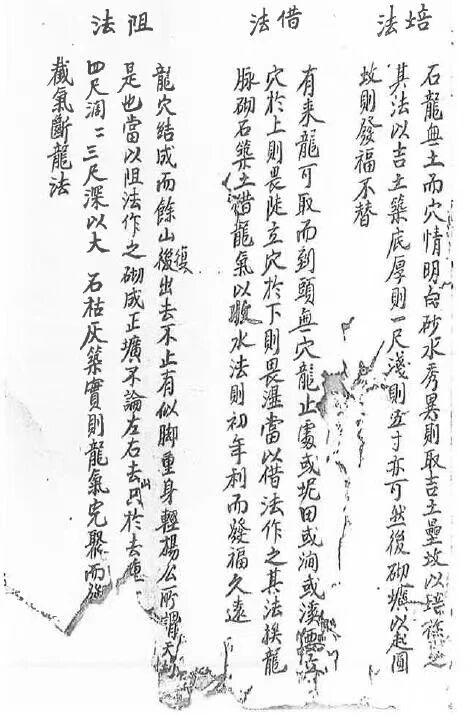 培法
石龍無土而穴情明白砂水秀異則取吉土壘墳以培
其法以吉土築底厚則一尺淺則五寸亦可然後砌壙以起圓
墳則發福不替
借法
有来龍可取而到頭無穴龍止處或坭田或澗或
穴於上則畏陡立穴於下則畏湿當以借法作之其法挨龍
脉砌石築土借龍氣以收水法則初年利而發福久遠
阻法
龍穴結成而餘山復後出去不止有似脚重身輕楊公所謂天
是也當以阻法作之砌成正壙不論左右去山只於去
四尺濶二三尺深以大石枯灰築實則龍氣完聚而
截氣斷龍法